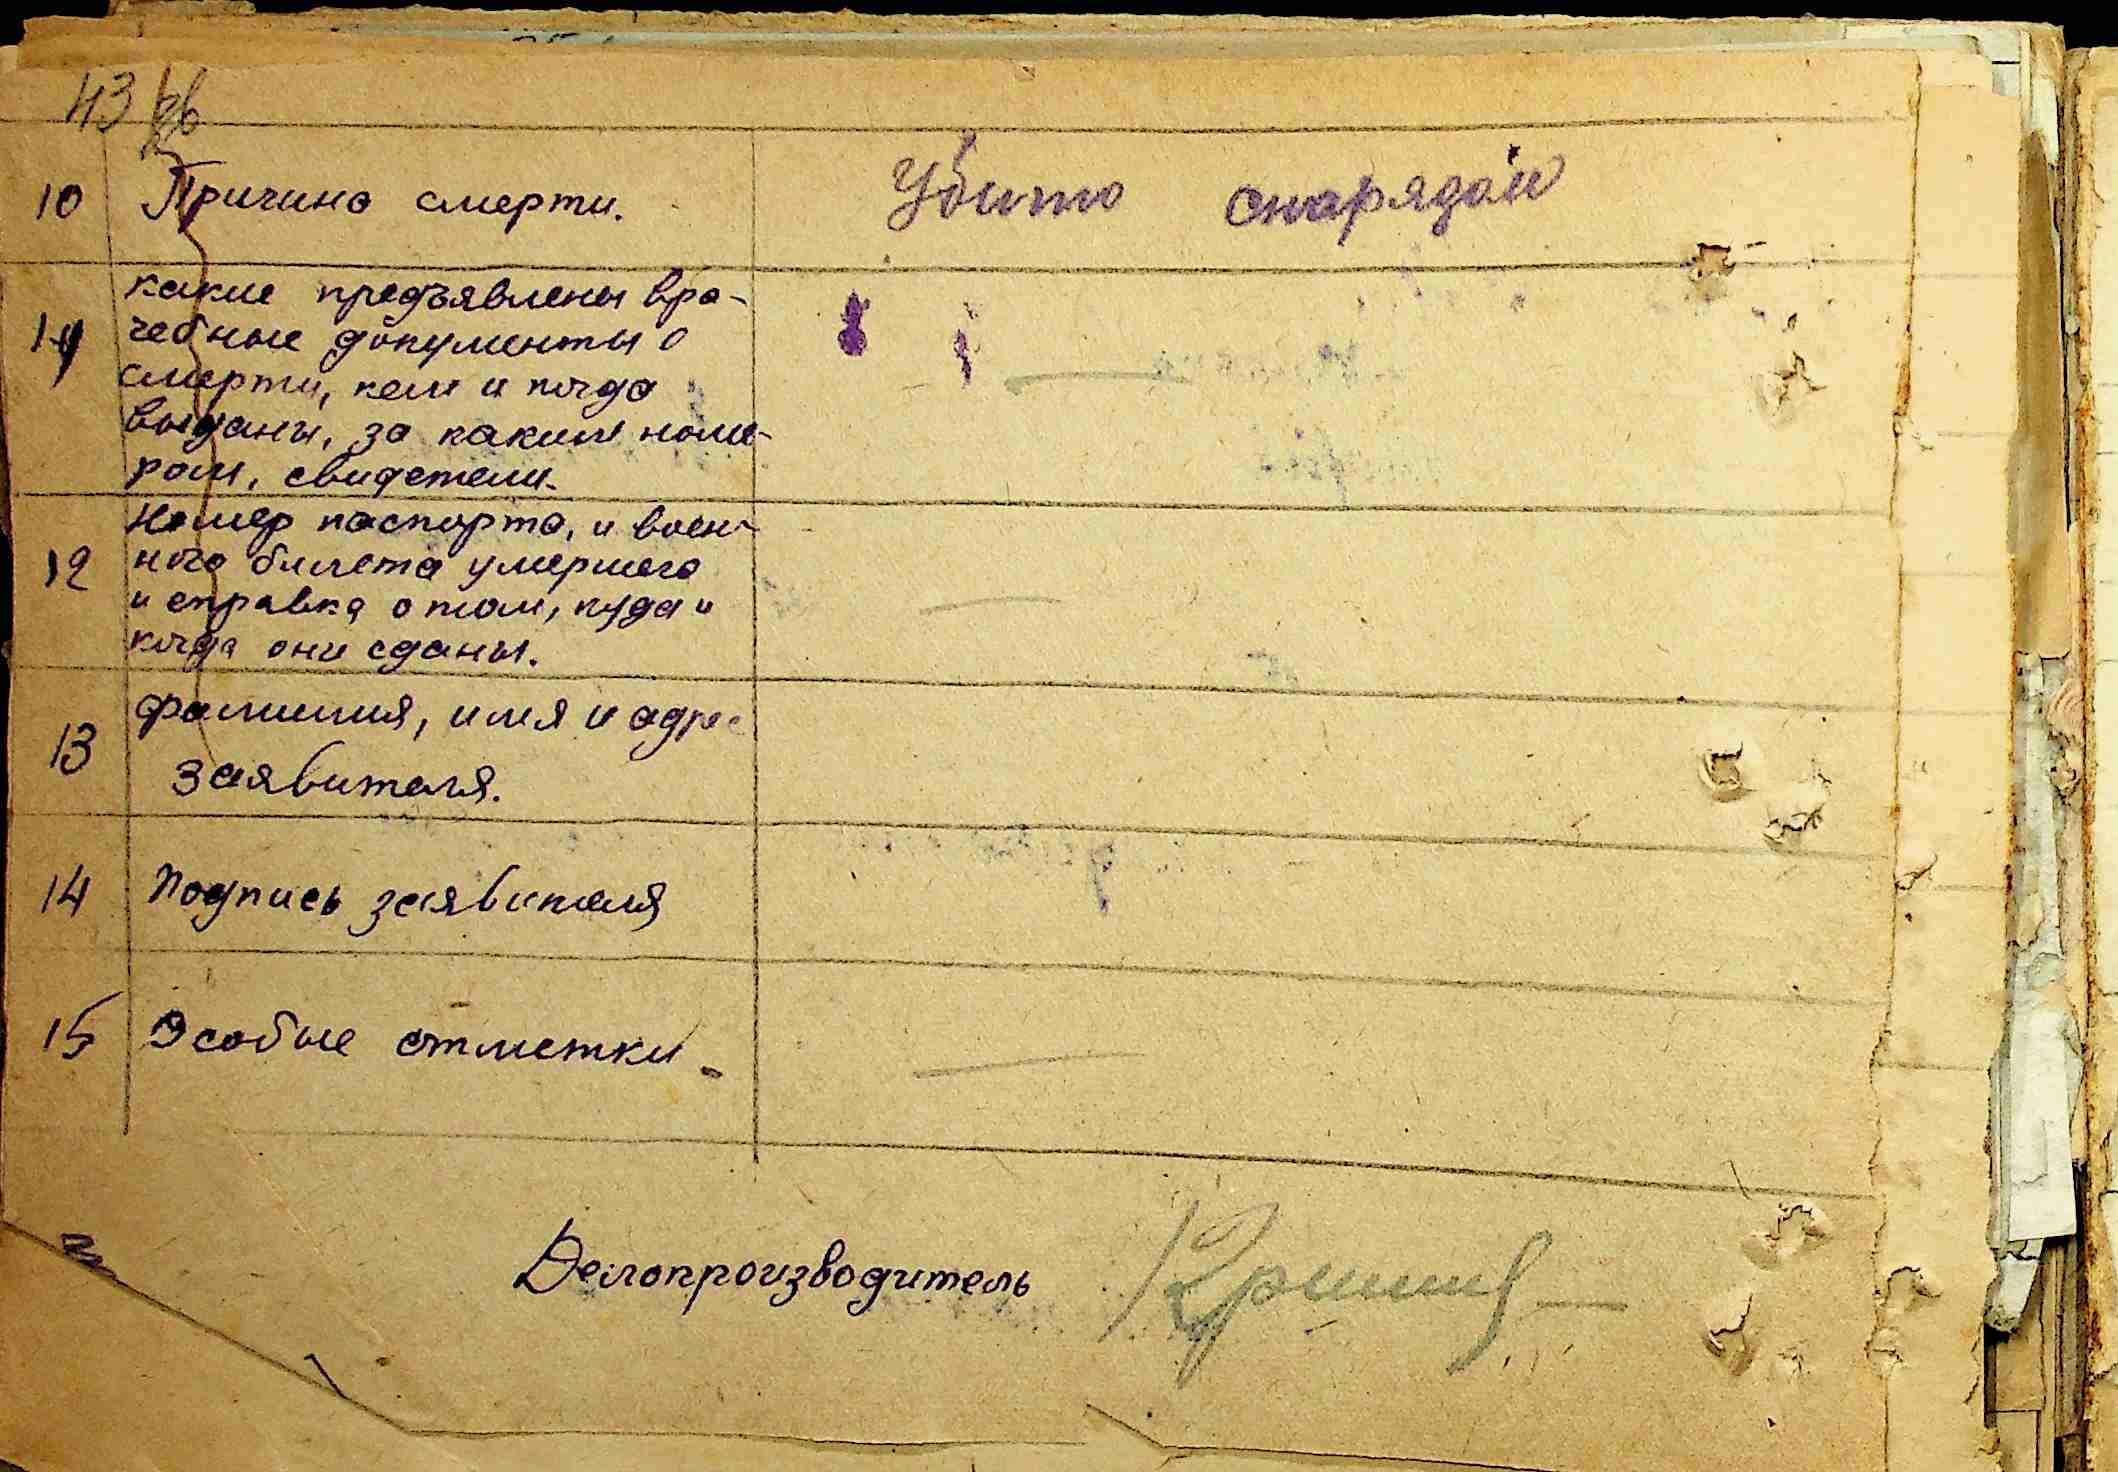 43 об
10 Причина смерти. Убито снарядом
11 какие предъявлены вра-
чебные документы о
смерти, кем и когда
выданы, за каким номе-
ром, свидетели.
12 Номер паспорта, и воен-
ного билета умершего
и справка о том, куда и
когда они сданы.
13 Фамилия, имя и адре
заявителя.
14 Подпись заявителя
15 Особые отметки
Делопроизводитель